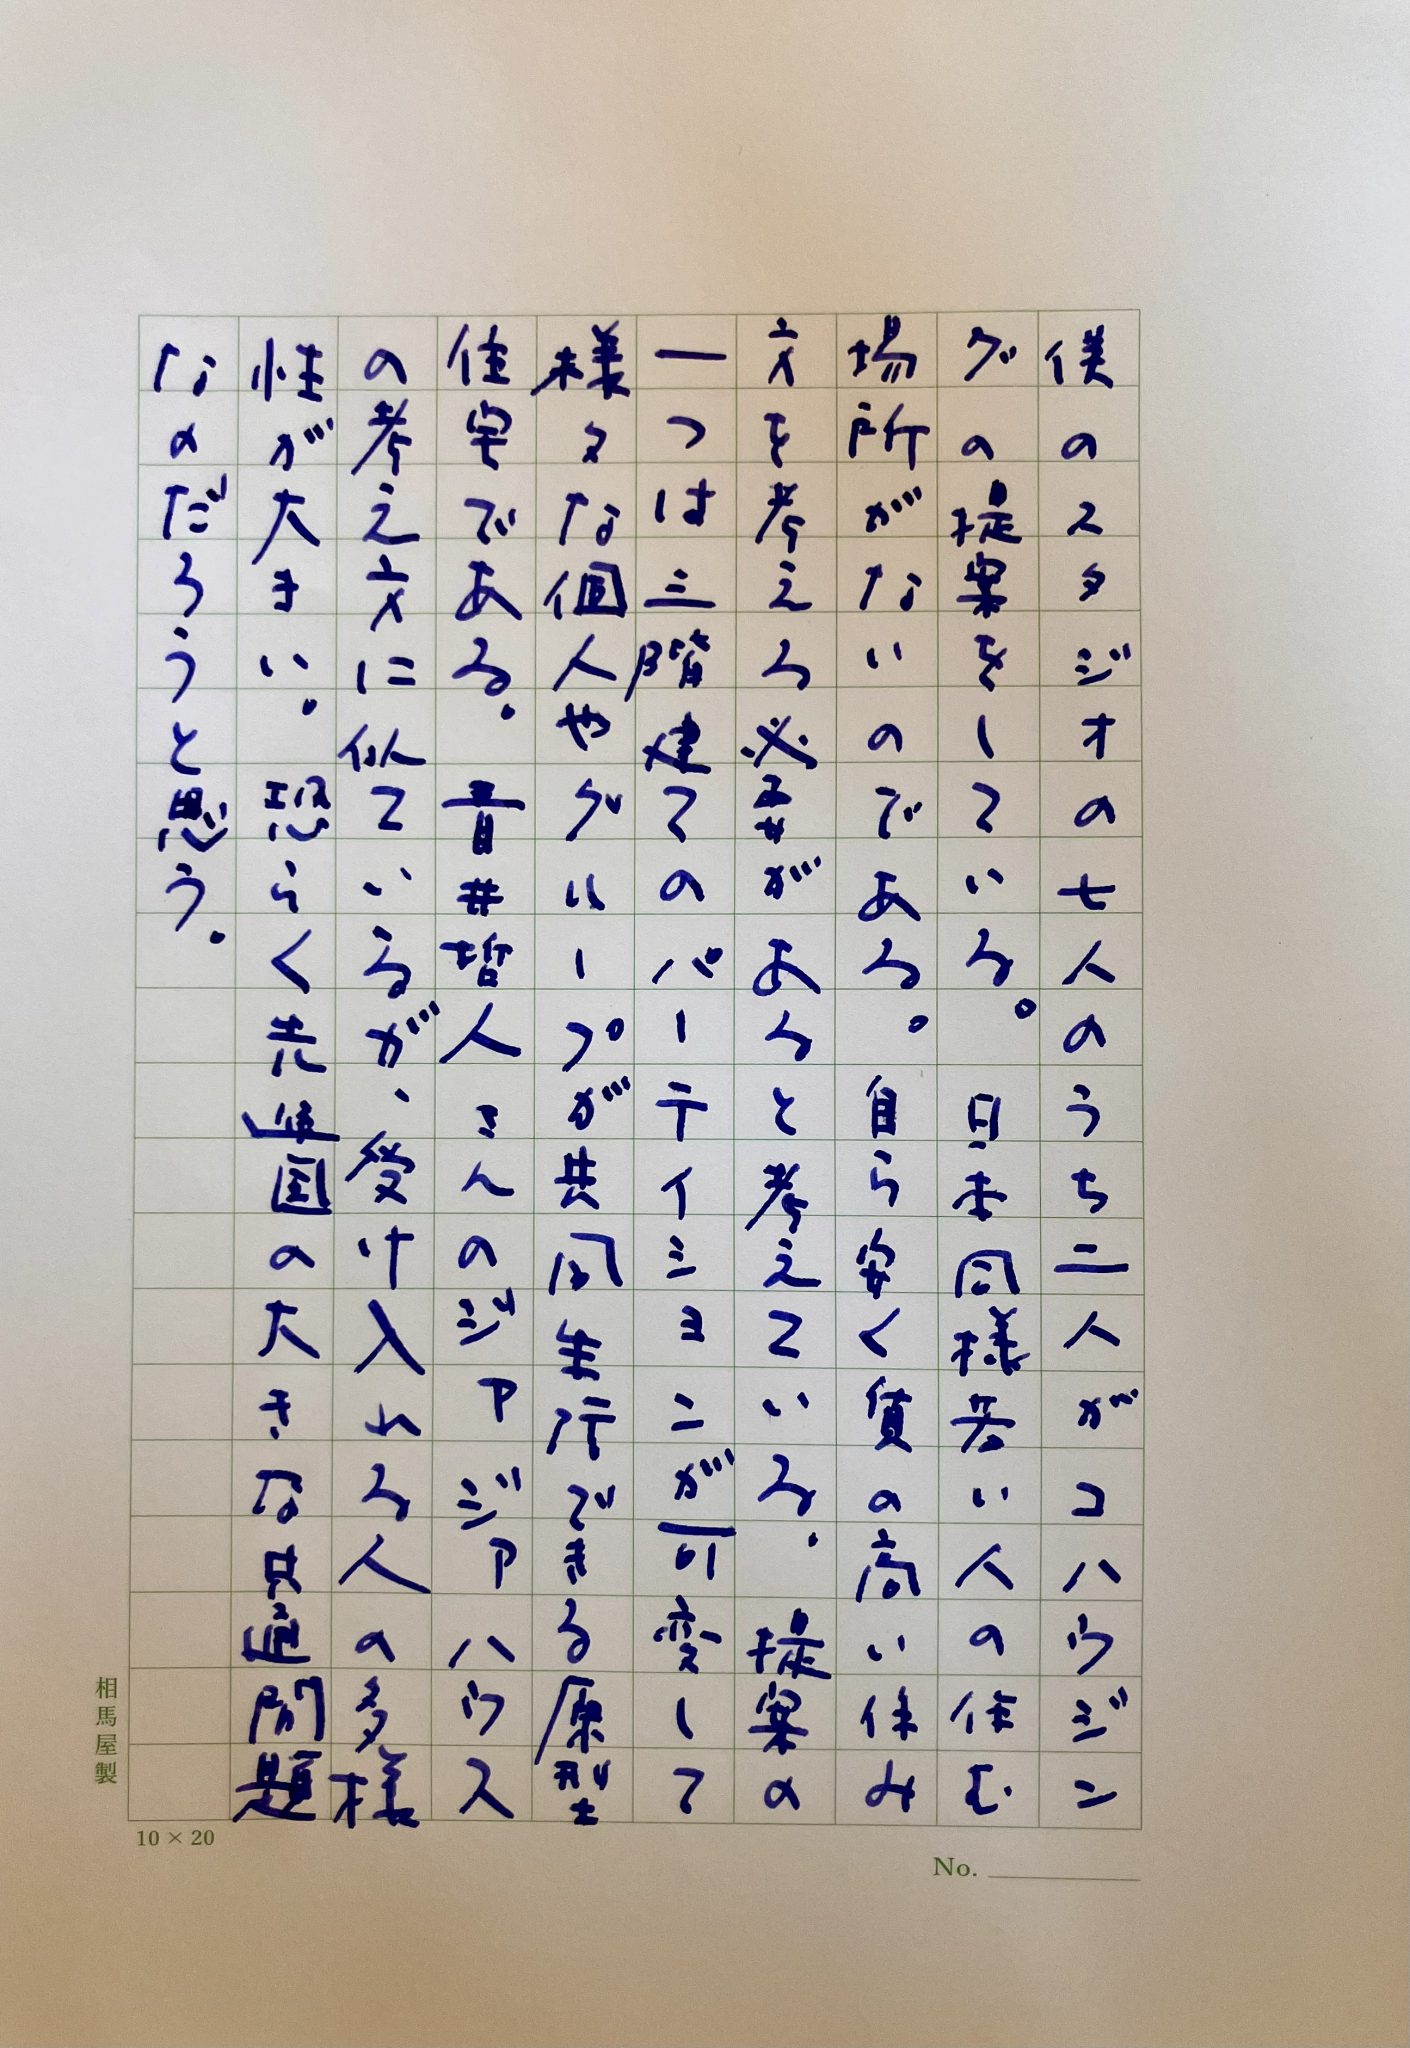 僕のスタジオの七人のうち二人がコハウジン
グの提案をしている。日本同様若い人の住む
場所がないのである。自ら安く質の高い住み
方を考える必要があると考えている。提案の
一つは三階建てのパーティションが可変して
様々な個人やグループが共同生活できる原型
住宅である。青井哲人さんのジアジアハウス
の考え方に似ているが、受け入れる人の多様
性が大きい。恐らく先進国の大きな共通問題
なのだろうと思う。
相馬屋製
10×20
No.